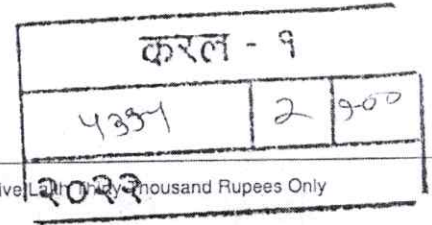 करल - १
५३३५ 2 १००
ive Lakh Thirty Thousand Rupees Only
२०२२